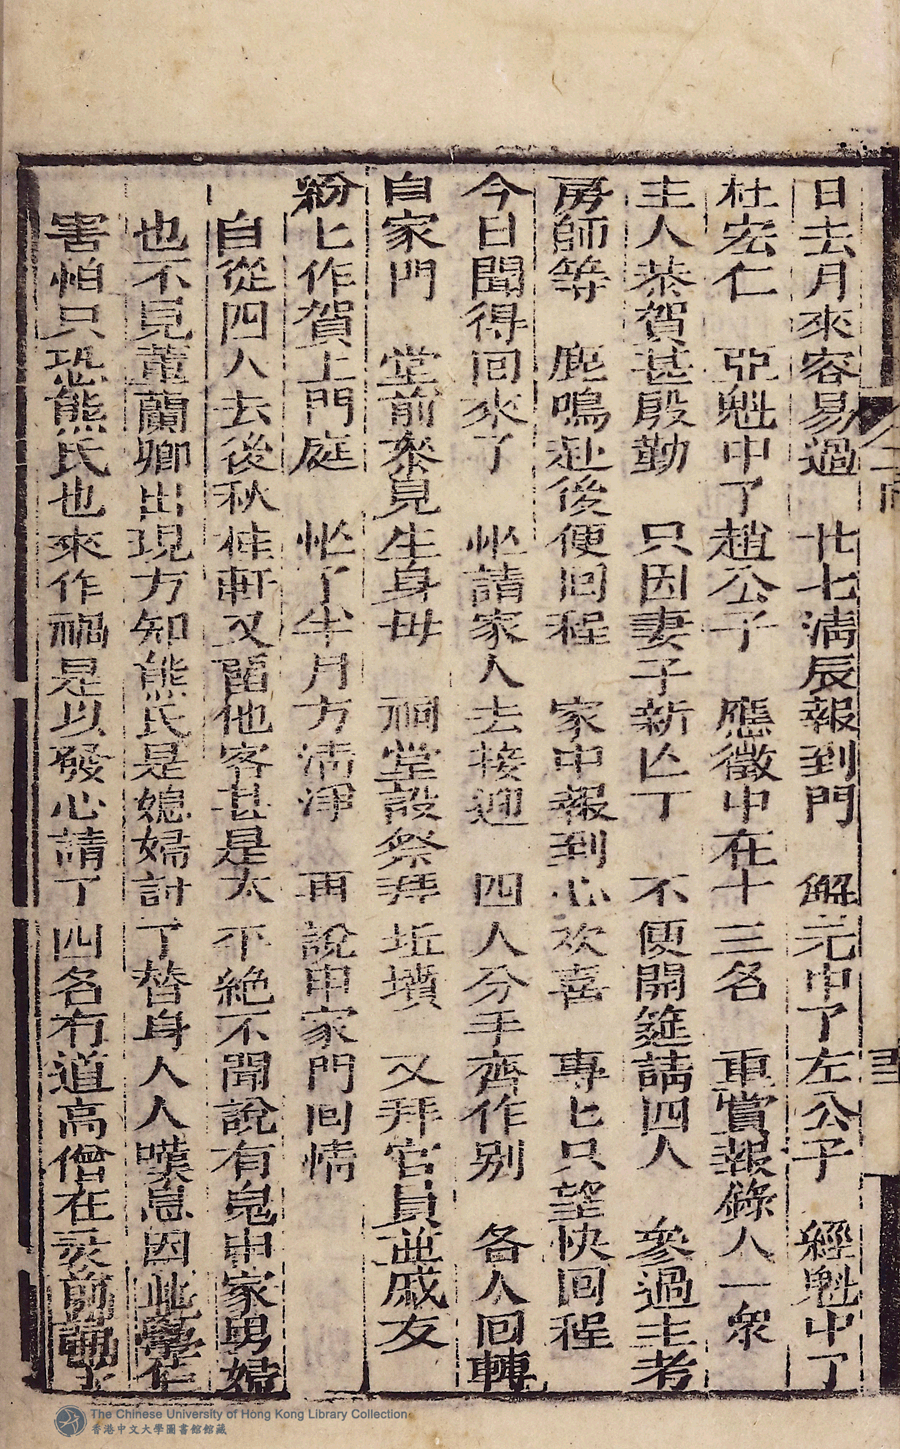 日去月來容易過　廿七淸辰報到門　解元中了左公子　經魁中了
杜宏仁　亞魁中了趙公子　應徵中在十三名　重賞報錄人一衆
主人恭賀甚殷勤　只因妻子新亾丁　不便開筵請四人　叅過主考
房師等　鹿鳴赴後便回程　家中報到心欢喜　專匕只望快回程
今日聞得回來了　忙請家人去接迎　四人分手齊作别　各人回轉
自家門　堂前叅見生身毋　祠堂設祭拜坵墳　又拜官員並戚友
紛匕作賀上門庭　忙了半月方淸淨　再說申家門囘情
自從四人去後秋桂軒又畱他客甚是太平絶不聞說有鬼申家男婦
也不見董蘭卿出現方知熊氏是媳婦討了替身人人嘆息因此
害怕只恐熊氏也來作禍是以發心請了四名有道高僧在
The Chinese University of Hong Kong Library Collection
香港中文大學圖書館館藏